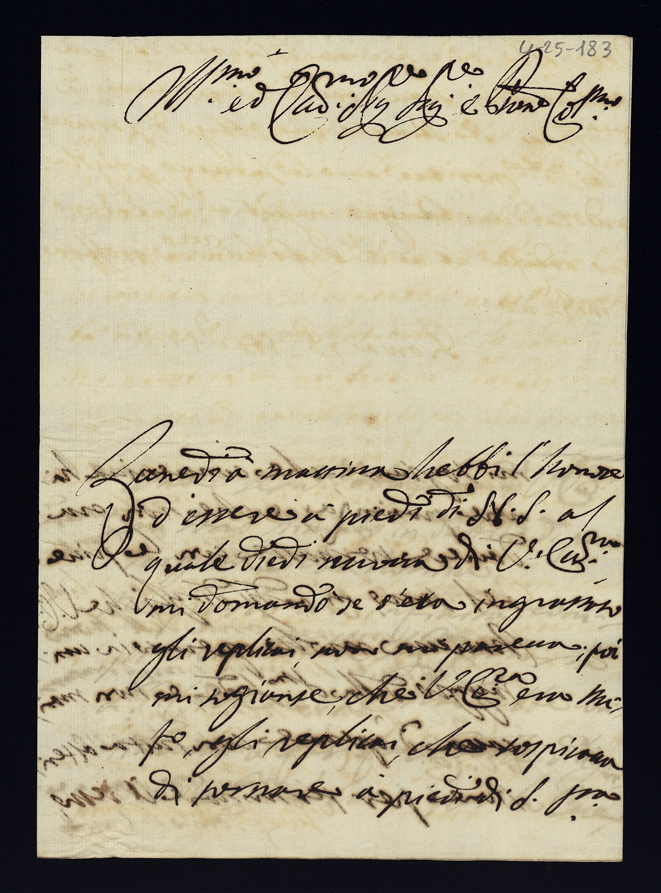 4-25-183
Ill.mo ed Ecc.mo Sig.re Sig.re e Pron Col.mo
Lunedi à mattina hebbi l'honore
d'essere à piedi di S. S. al
quale diedi nuova di V. Ecc.za
mi domandò se s'era ingrassato
gli replicai, non mi pareua. poi
mi sogionse, che V. Ecc.za era
gli replicai, che sospiraua
di tornare à piedi di S. S.tà